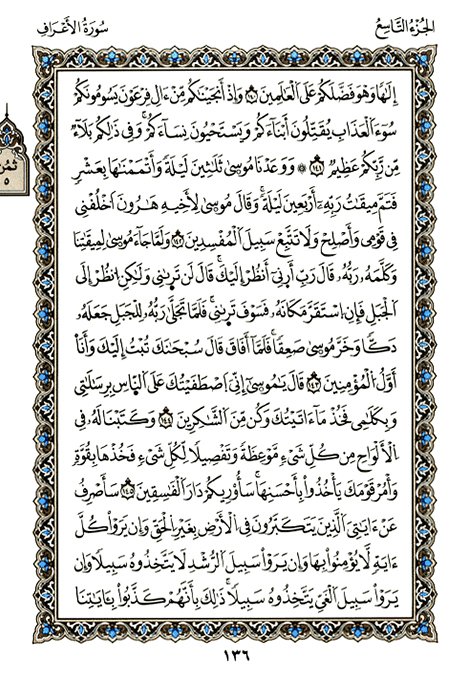 الجُزْءُ التَّاسِعُ
سُورَةُ الأَعْرَافِ
إِلَٰهًا وَهُوَ فَضَّلَكُمْ عَلَى الْعَٰلَمِينَ ١٤٠ وَإِذْ أَنجَيْنَٰكُم مِّنْ ءَالِ فِرْعَوْنَ يَسُومُونَكُمْ
سُوٓءَ الْعَذَابِ يُقَتِّلُونَ أَبْنَآءَكُمْ وَيَسْتَحْيُونَ نِسَآءَكُمْ وَفِي ذَٰلِكُم بَلَآءٌ
مِّن رَّبِّكُمْ عَظِيمٌ ١٤١ ۞ وَوَٰعَدْنَا مُوسَىٰ ثَلَٰثِينَ لَيْلَةً وَأَتْمَمْنَٰهَا بِعَشْرٍ
فَتَمَّ مِيقَٰتُ رَبِّهِۦٓ أَرْبَعِينَ لَيْلَةً وَقَالَ مُوسَىٰ لِأَخِيهِ هَٰرُونَ اخْلُفْنِي
فِي قَوْمِي وَأَصْلِحْ وَلَا تَتَّبِعْ سَبِيلَ الْمُفْسِدِينَ ١٤٢ وَلَمَّا جَآءَ مُوسَىٰ لِمِيقَٰتِنَا
وَكَلَّمَهُۥ رَبُّهُۥ قَالَ رَبِّ أَرِنِيٓ أَنظُرْ إِلَيْكَ قَالَ لَن تَرَىٰنِي وَلَٰكِنِ انظُرْ إِلَى
الْجَبَلِ فَإِنِ اسْتَقَرَّ مَكَانَهُۥ فَسَوْفَ تَرَىٰنِي فَلَمَّا تَجَلَّىٰ رَبُّهُۥ لِلْجَبَلِ جَعَلَهُۥ
دَكًّا وَخَرَّ مُوسَىٰ صَعِقًا فَلَمَّآ أَفَاقَ قَالَ سُبْحَٰنَكَ تُبْتُ إِلَيْكَ وَأَنَا
أَوَّلُ الْمُؤْمِنِينَ ١٤٣ قَالَ يَٰمُوسَىٰٓ إِنِّي اصْطَفَيْتُكَ عَلَى النَّاسِ بِرِسَٰلَتِي
وَبِكَلَٰمِي فَخُذْ مَآ ءَاتَيْتُكَ وَكُن مِّنَ الشَّٰكِرِينَ ١٤٤ وَكَتَبْنَا لَهُۥ فِي
الْأَلْوَاحِ مِن كُلِّ شَيْءٍ مَّوْعِظَةً وَتَفْصِيلًا لِّكُلِّ شَيْءٍ فَخُذْهَا بِقُوَّةٍ
وَأْمُرْ قَوْمَكَ يَأْخُذُوا۟ بِأَحْسَنِهَا سَأُو۟رِيكُمْ دَارَ الْفَٰسِقِينَ ١٤٥ سَأَصْرِفُ
عَنْ ءَايَٰتِيَ الَّذِينَ يَتَكَبَّرُونَ فِي الْأَرْضِ بِغَيْرِ الْحَقِّ وَإِن يَرَوْا۟ كُلَّ
ءَايَةٍ لَّا يُؤْمِنُوا۟ بِهَا وَإِن يَرَوْا۟ سَبِيلَ الرُّشْدِ لَا يَتَّخِذُوهُ سَبِيلًا وَإِن
يَرَوْا۟ سَبِيلَ الْغَيِّ يَتَّخِذُوهُ سَبِيلًا ذَٰلِكَ بِأَنَّهُمْ كَذَّبُوا۟ بِـَٔايَٰتِنَا
ثُمُن
٥
١٣٦